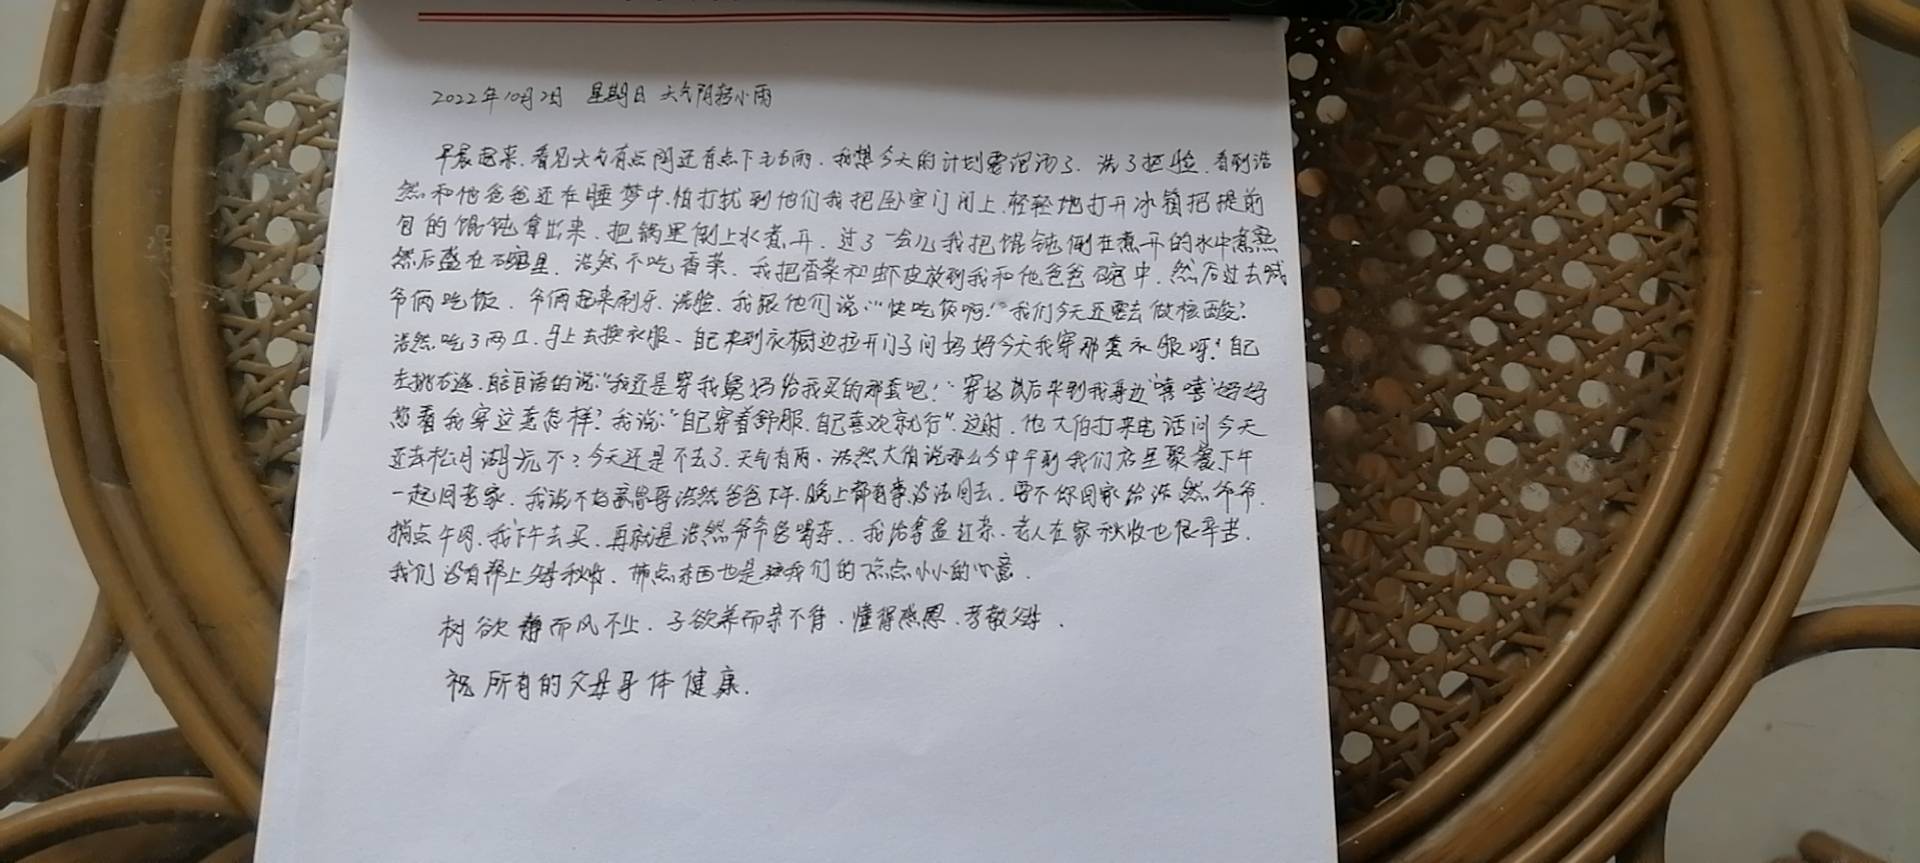 2022年10月2日 星期日 天气阴转小雨
早晨起来、看见天气有点阴还有点下毛毛雨、我想今天的计划要泡汤了、洗了把脸、看到浩
然和他爸爸还在睡梦中、怕打扰到他们我把卧室门闭上、轻轻地打开冰箱把提前
包的馄饨拿出来、把锅里倒上水煮开、过了一会儿我把馄饨倒在煮开的水中煮熟
然后盛在碗里、浩然不吃香菜、我把香菜和虾皮放到我和他爸爸碗中、然后过去喊
爷俩吃饭、爷俩起来刷牙、洗脸、我跟他们说:"快吃饭啊!"我们今天还要去做核酸?
浩然吃了两口、马上去换衣服、自己来到衣橱边拉开门子问妈妈今天我穿那套衣服呀?自己
左挑右选、自言自语的说:"我还是穿我舅妈给我买的那套吧!"穿好以后来到我身边"嘻嘻"妈妈
您看我穿这套怎样?我说:"自己穿着舒服、自己喜欢就行"、这时、他大伯打来电话问今天
还去松月湖玩不?今天还是不去了、天气有雨、浩然大伯说那么今中午到我们店里聚餐下午
一起回老家、我说不好意思哥浩然爸爸下午、晚上都有事没法回去、要不你回家给浩然爷爷、
捎点牛肉、我下午去买、再就是浩然爷爷爱喝茶、我沽拿盒红茶、老人在家秋收也很辛苦、
我们没有帮上父母秋收、捎点东西也是我们的点点小小的心意.
树欲静而风不止、子欲养而亲不待、懂得感恩、孝敬父母.
祝所有的父母身体健康.